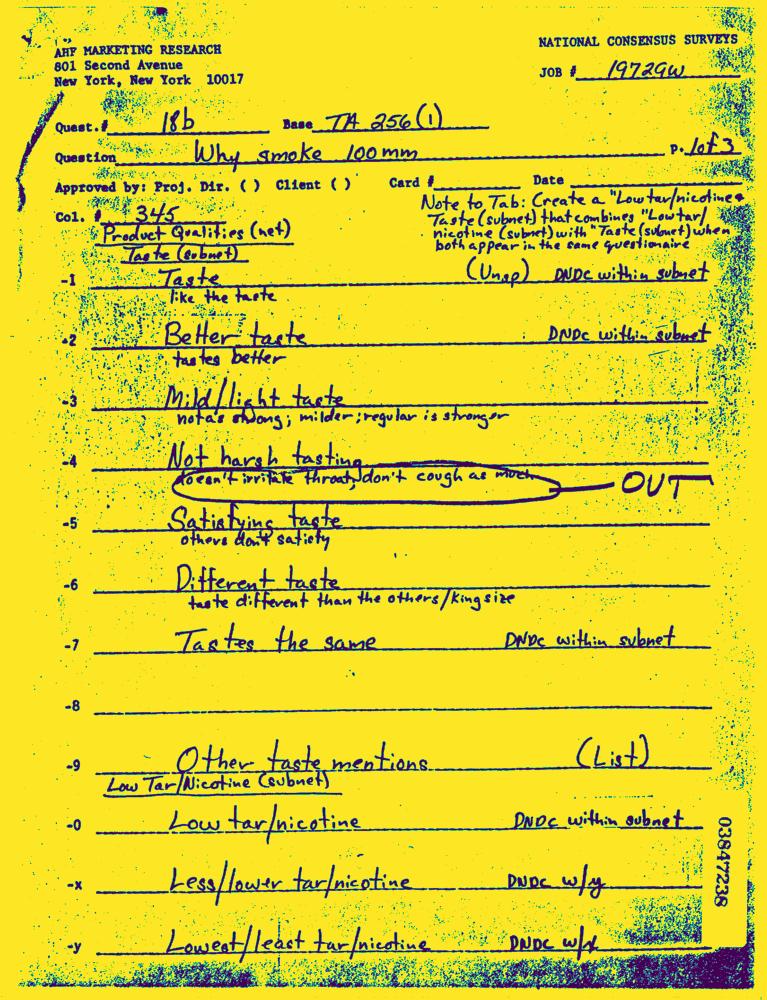 AHF MARKETING RESEARCH
801 Second Avenue
New York, New York 10017
NATIONAL CONSENSUS SURVEYS
JOB # 19729W
Quest.# 18b Base TA 256 (1)
Question Why smoke 100mm P. 1 of 3
Approved by: Proj. Dir. ( ) Client ( ) Card # Date
Note to Tab: Create a "Low tar/nicotine &
Taste (subnet) that combines "Low tar/
nicotine (subnet) with "Taste (subnet) when
both appear in the same questionaire
Col. # 345
Product Qualities (net)
Taste (subnet)
-1 Taste (Unsp) DNDC within subnet
like the taste
-2 Better taste DNDC within subnet
tastes better
-3 Mild/light taste
not as strong; milder; regular is stronger
-4 Not harsh tasting
doesn't irritate throat, don't cough as much OUT
-5 Satisfying taste
others don't satisfy
-6 Different taste
taste different than the others/king size
-7 Tastes the same DNDC within subnet
-8
-9 Other taste mentions (List)
Low Tar/Nicotine (subnet)
-0 Low tar/nicotine DNDC within subnet
-x Less/lower tar/nicotine DNDC w/y
-y Lowest/least tar/nicotine DNDC w/x
03847238